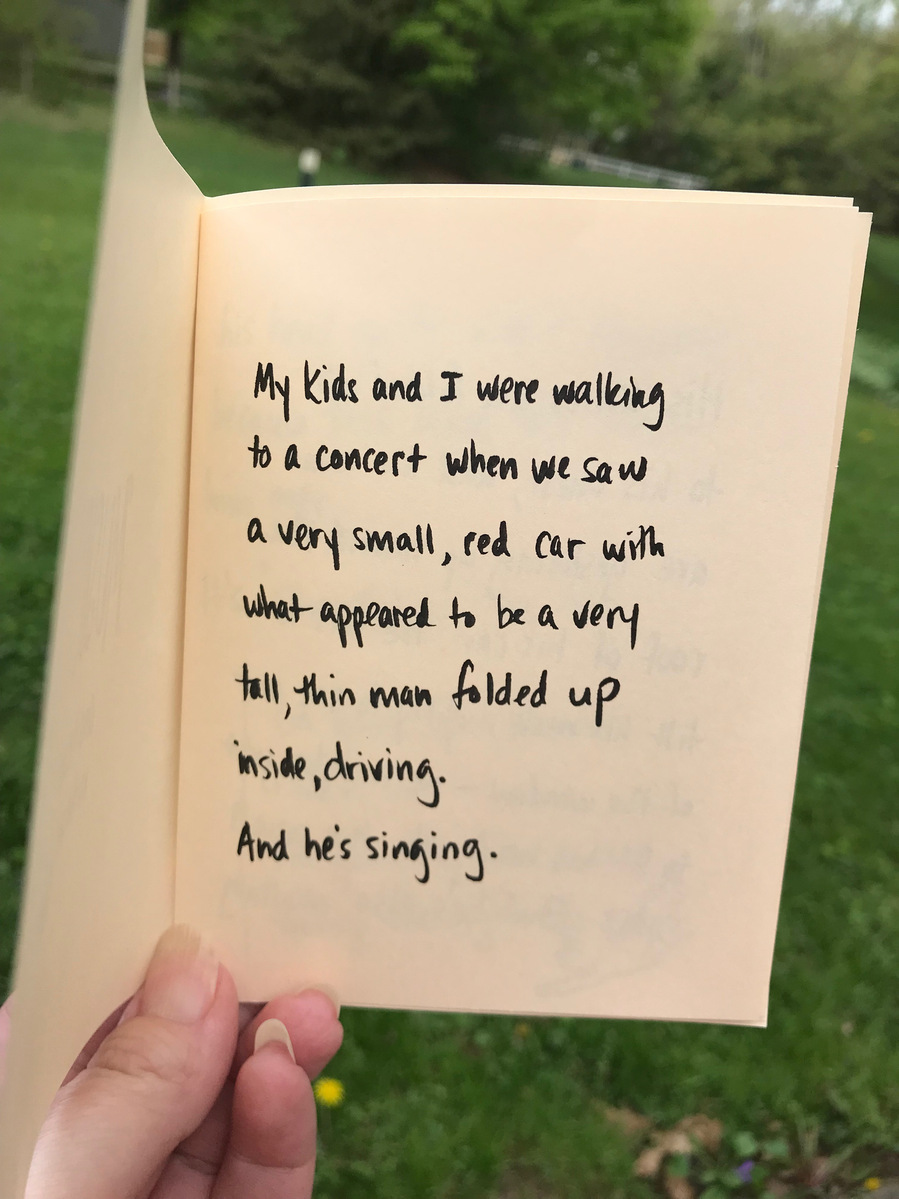 My kids and I were walking
to a concert when we saw
a very small, red car with
what appeared to be a very
tall, thin man folded up
inside, driving.
And he's singing.